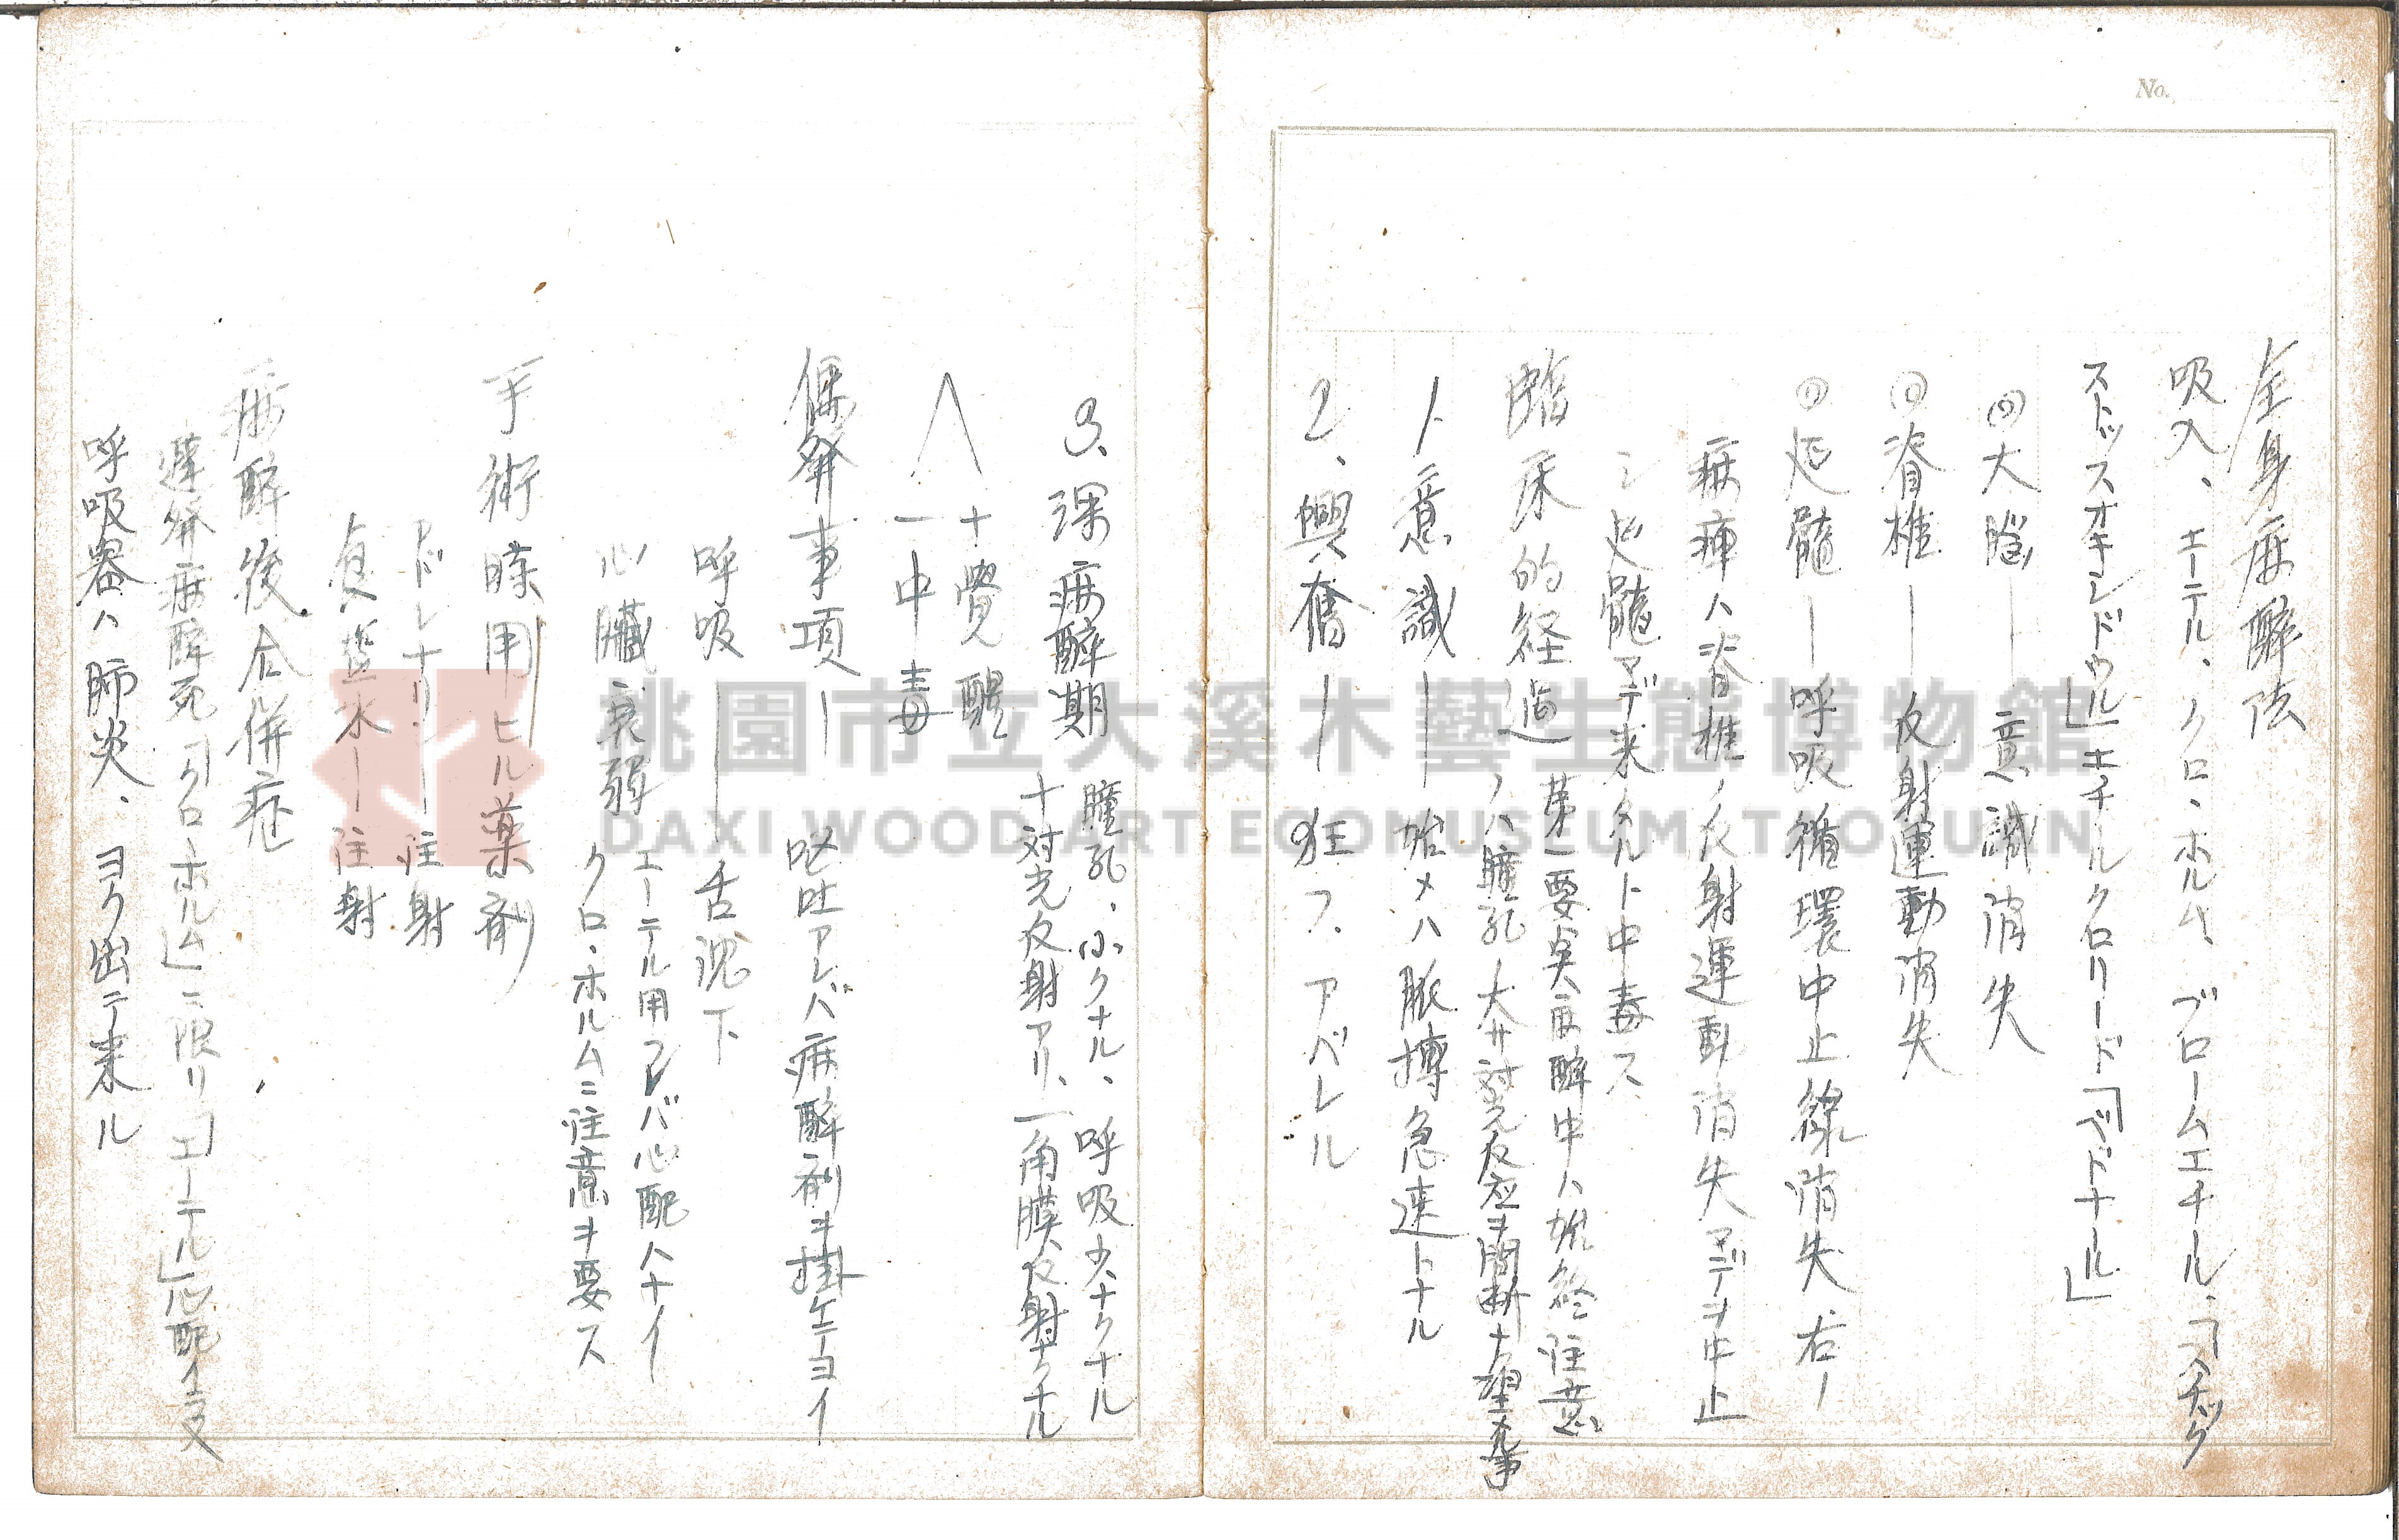 No.
全身麻酔法
吸入、エーテル、クロ・ホルム、ブロームエチル、「スチック
ストッスオキレドウル」エチルクロリード「ペドナール」
大脳 — 意識消失
脊椎 — 反射運動消失
延髄 — 呼吸循環中止線消失、右ノ
麻痺ハ脊椎ノ反射運動消失マデヲ中止
シ延髄マデ来タルト中毒ス
臨床的経過 第一要実麻酔中ハ始終注意
ノハ瞳孔ノ大サ対光反応ヲ間断ナク望メル事
1、意識 — 始メハ脈搏急速トナル
2、興奮 — 狂フ、アバレル
3、深麻酔期 瞳孔、小クナル、呼吸少ナクナル
十対光反射アリ、一角膜反射ナクナル
十覺醒
一中毒
偶発事項 — 呕吐アレバ麻酔剤ヲ掛ケテヨイ
呼吸 — 舌沈下
心臓衰弱 エーテル用フレバ心配ハナイ
クロ・ホルムニ注意ヲ要ス
手術時用ヒル薬剤
アドレナリン — 注射
食塩水 — 注射
麻酔後合併症
遅発麻酔死「クロ・ホルム」ニ限リ「エーテル」心配イラヌ
呼吸器ハ肺炎、ヨク出テ来ル
桃園市立大溪木藝生態博物館
DAXI WOOD ART ECOMUSEUM, TAOYUAN